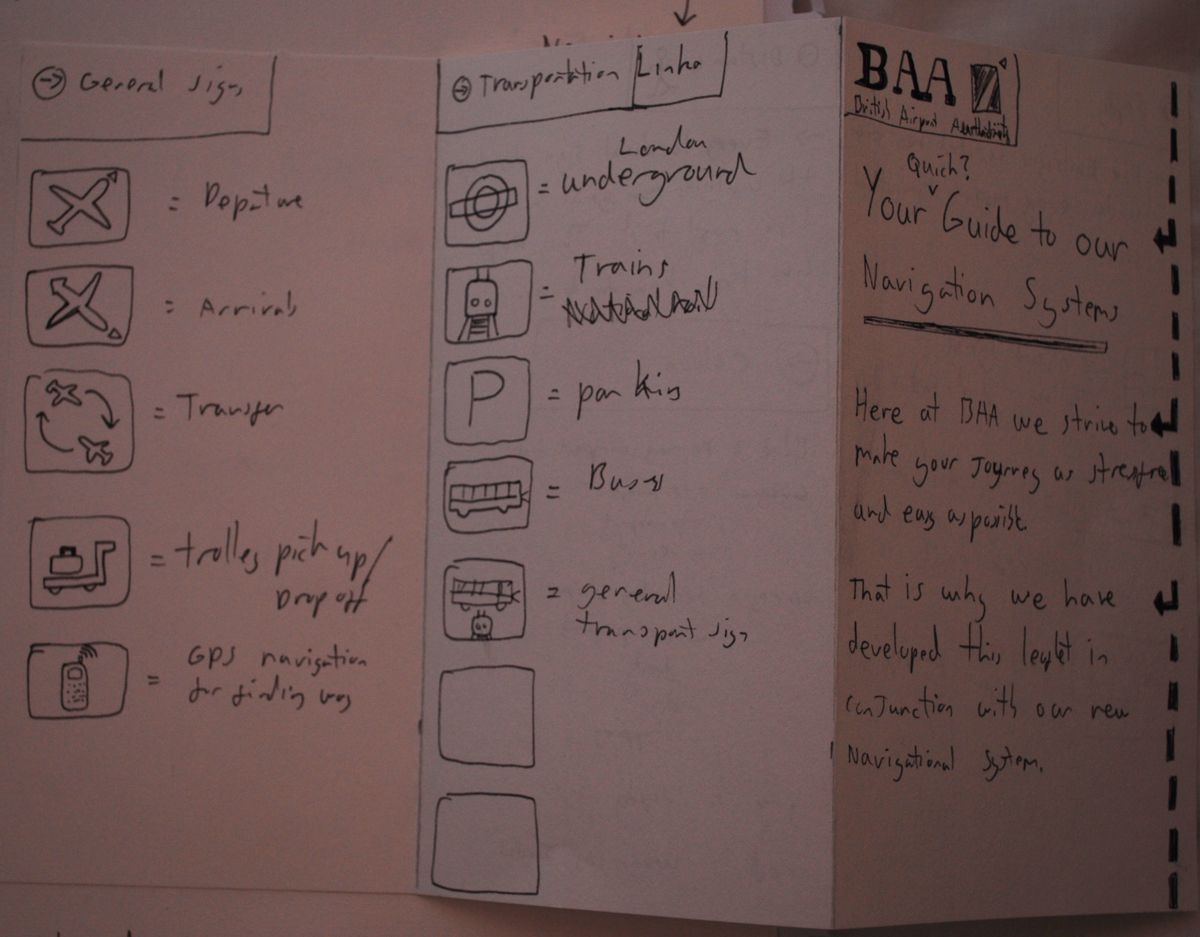 General signs
= Depature
= Arrivals
= Transfer
= trolley pick up/
Drop off
= GPS navigation
for finding way
Transportation Links
London
= underground
= Trains
P
= parking
= Buses
= general
transport sign
BAA
British Airport
Quick?
Your Guide to our
Navigation Systems
Here at BAA we strive to
make your Journey as
and easy as
That is why we have
developed this leaflet in
conJunction with our new
Navigational System.